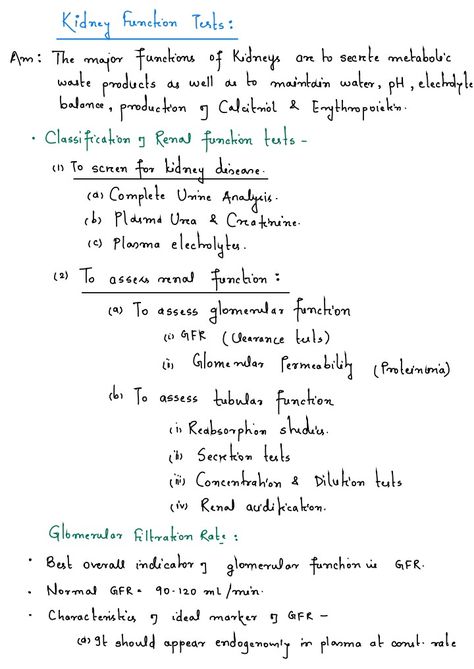 Kidney Function Tests:
Ans: The major functions of Kidneys are to secrete metabolic
waste products as well as to maintain water, pH, electrolyte
balance, production of Calcitriol & Erythropoietin.
• Classification of Renal function tests -
(1) To screen for kidney disease.
(a) Complete Urine Analysis.
(b) Plasma Urea & Creatinine.
(c) Plasma electrolytes.
(2) To assess renal function:
(a) To assess glomerular function
(i) GFR (Clearance tests)
(ii) Glomerular Permeability (Proteinuria)
(b) To assess tubular function
(i) Reabsorption studies.
(ii) Secretion tests
(iii) Concentration & Dilution tests
(iv) Renal acidification.
Glomerular Filtration Rate:
• Best overall indicator of glomerular function is GFR.
• Normal GFR = 90-120 mL/min.
• Characteristics of ideal marker of GFR -
(a) It should appear endogenously in plasma at const. rate